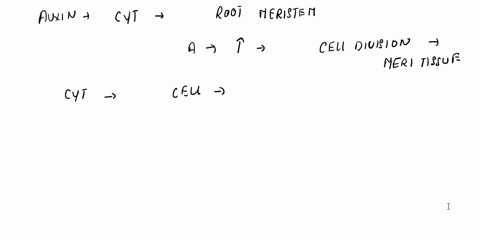 AUXIN + CYT → ROOT MERISTEM
A → ↑ → CELL DIVISION →
MERI TISSUE
CYT → CELL →